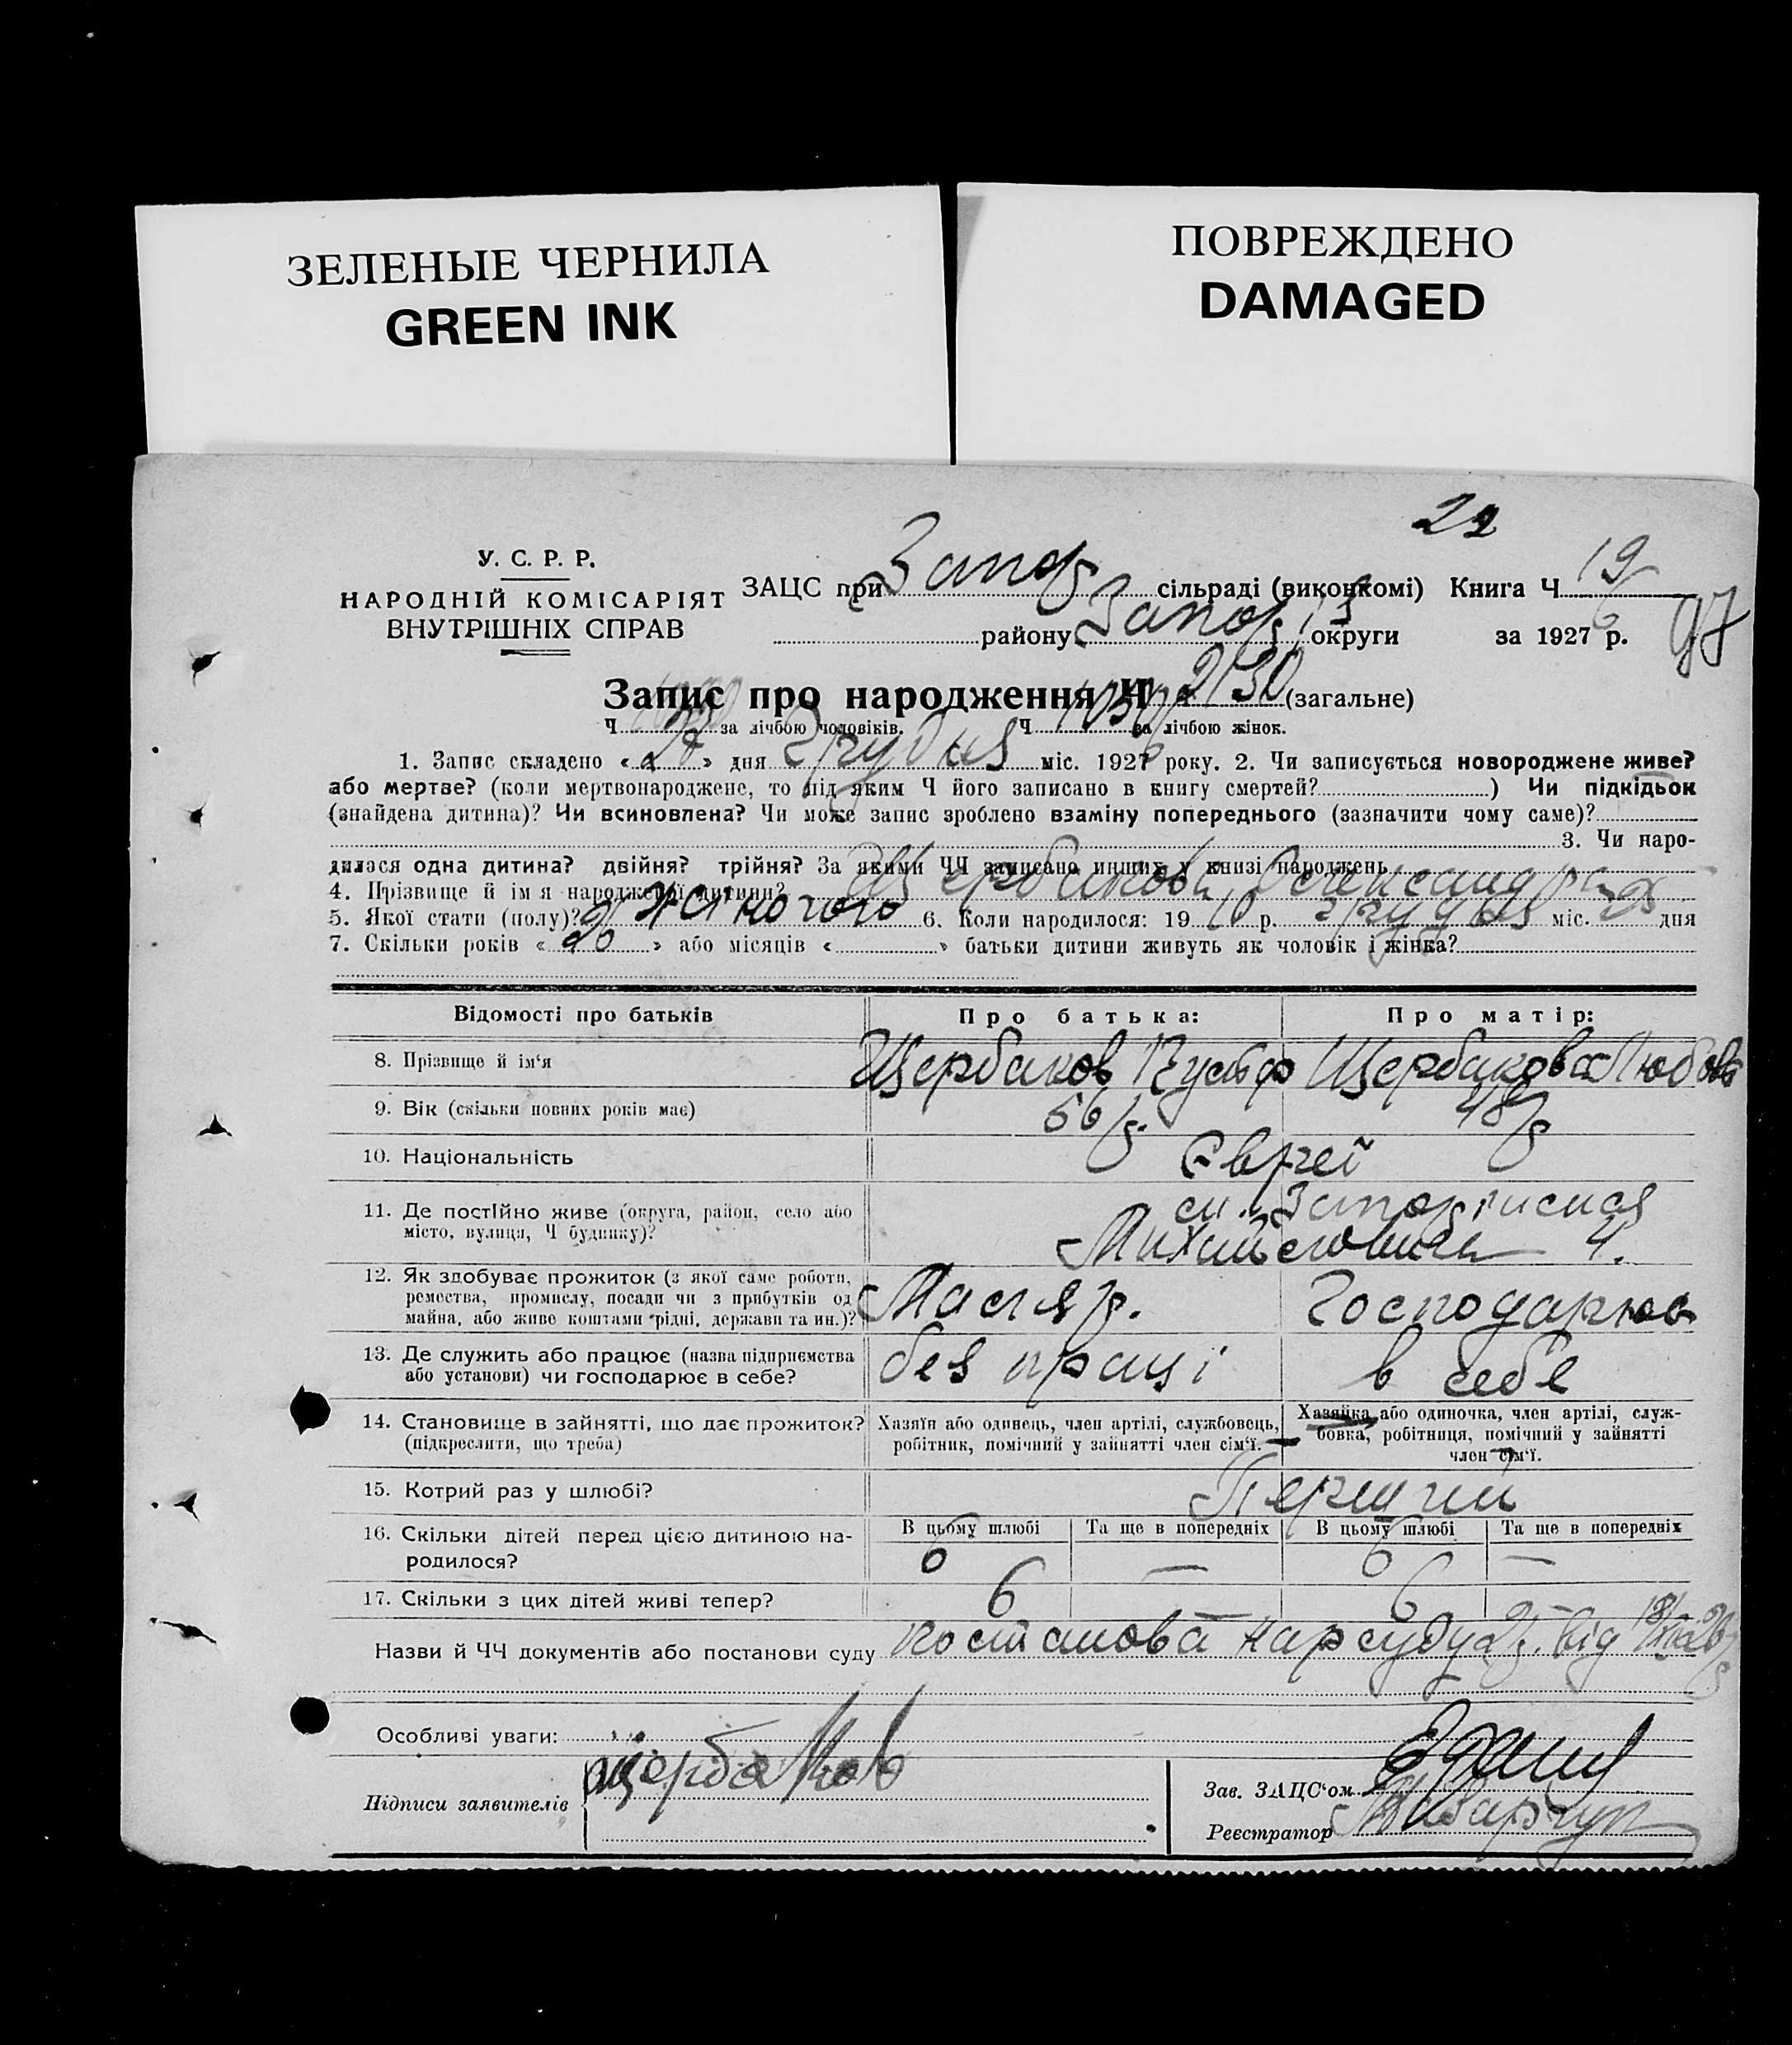 ЗЕЛЕНЫЕ ЧЕРНИЛА
GREEN INK
ПОВРЕЖДЕНО
DAMAGED
22
У. С. Р. Р.
НАРОДНІЙ КОМІСАРІЯТ
ВНУТРІШНІХ СПРАВ
ЗАЦС при Запор сільраді (виконкомі) Книга Ч 19
району Запоріз округи за 1927 6 р.
97
Запис про народження Ч 2130 (загальне)
Ч за лічбою чоловіків. Ч 1030 за лічбою жінок.
1. Запис складено « » дня Грудня міс. 1927 6 року. 2. Чи записується новороджене живе?
або мертве? (коли мертвонароджене, то під яким Ч його записано в книгу смертей? ) Чи підкідьок
(знайдена дитина)? Чи всиновлена? Чи може запис зроблено взаміну попереднього (зазначити чому саме)?
3. Чи наро-
дилася одна дитина? двійня? трійня? За якими ЧЧ записано инших у книзі народжень
4. Прізвище й ім'я народженої дитини? Щербакова Олександра
5. Якої стати (полу)? жіночого 6. Коли народилося: 1910 р. грудня міс. 25 дня
7. Скільки років « » або місяців « » батьки дитини живуть як чоловік і жінка?
Відомості про батьків
Про батька:
Про матір:
8. Прізвище й ім'я
Щербаков Щербакова Любов
9. Вік (скільки повних років має)
56/р. 48/р
10. Національність
Євреї
11. Де постійно живе (округа, район, село або
місто, вулиця, Ч будинку)?
4.
12. Як здобуває прожиток (з якої саме роботи,
ремества, промислу, посади чи з прибутків од
майна, або живе коштами рідні, держави та ин.)?
Маляр. Господарює
13. Де служить або працює (назва підприємства
або установи) чи господарює в себе?
без праці в себе
14. Становище в зайнятті, що дає прожиток?
(підкреслити, що треба)
Хазяїн або одинець, член артілі, службовець,
робітник, помічний у зайнятті член сім'ї.
Хазяйка або одиночка, член артілі, служ-
бовка, робітниця, помічний у зайнятті
член сім'ї.
15. Котрий раз у шлюбі?
Перший
16. Скільки дітей перед цією дитиною на-
родилося?
В цьому шлюбі Та ще в попередніх В цьому шлюбі Та ще в попередніх
6 — 6 —
17. Скільки з цих дітей живі тепер?
6 — 6 —
Назви й ЧЧ документів або постанови суду постанова Нарсуду 2 від
Особливі уваги:
Підписи заявителів Щербаков
Зав. ЗАЦС'ом
Реєстратор